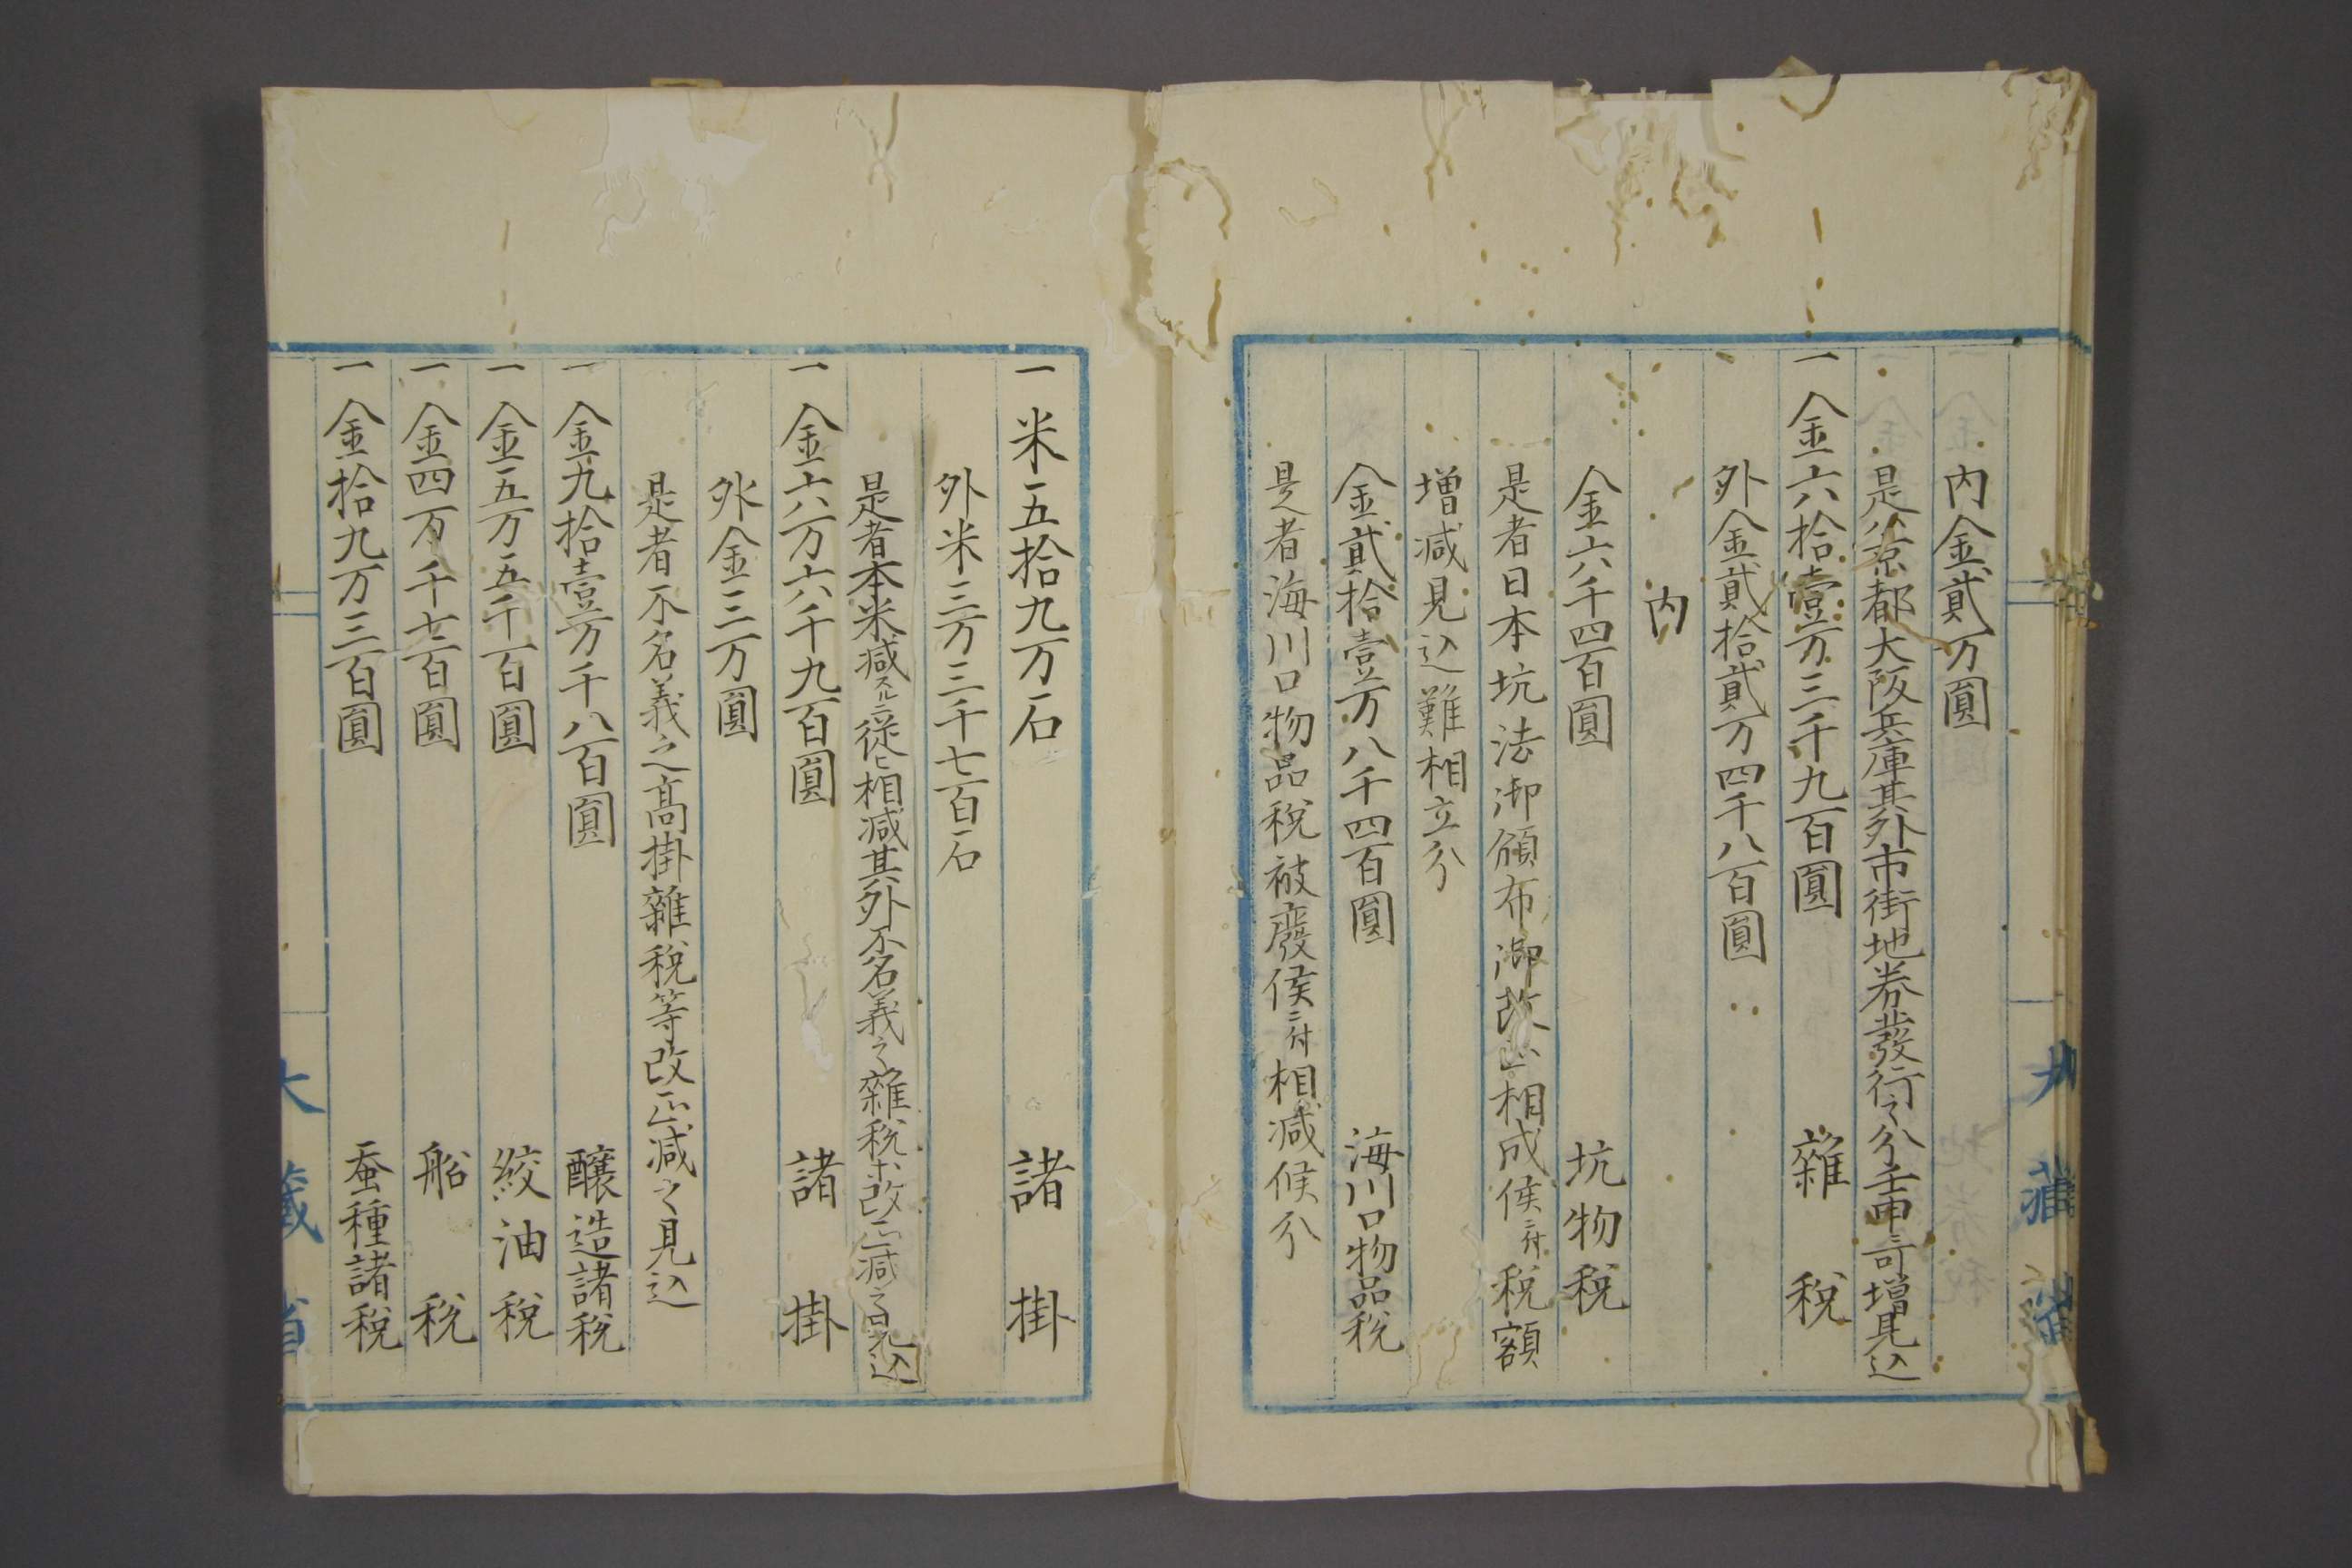 内金貳万圓
是ハ京都大阪兵庫其外市街地券發行之分壬申ニ可増見込
一金六拾壹万三千九百圓 雜税
外金貳拾貳万四千八百圓
内
金六千四百圓 坑物税
是者日本坑法御頒布御改正相成候ニ付税額
増減見込難相立分
金貳拾壹万八千四百圓 海川口物品税
是者海川口物品税被廢候ニ付相減候分
一米五拾九万石 諸掛
外米三万三千七百石
是者本米減スルニ従ヒ相減其外不名義之雜税ホ改正減之見込
一金六万六千九百圓 諸掛
外金三万圓
是者不名義之髙掛雜税等改正減之見込
一金九拾壹万千八百圓 醸造諸税
一金五万五千百圓 絞油税
一金四万千七百圓 船税
一金拾九万三百圓 蚕種諸税
大藏省